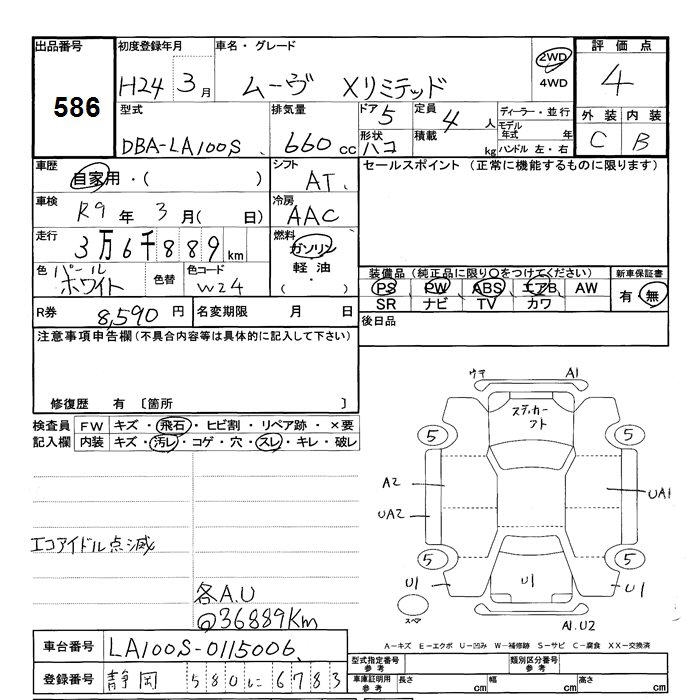 出品番号
586
初度登録年月
H24 3月
車名・グレード
ムーヴ Xリミテッド
2WD
4WD
評価点
4
型式
DBA-LA100S
排気量
660 cc
ドア 5
定員 4 人
形状 ハコ
積載 kg
ディーラー・並行
モデル年式 年
ハンドル 左・右
外装 内装
C B
車歴
自家用・( )
シフト
AT
セールスポイント (正常に機能するものに限ります)
車検
R9年 3月( 日)
冷房
AAC
走行
3万6千889km
燃料
ガソリン
軽油
( ・ )
色 パールホワイト
色替
色コード
W24
装備品(純正品に限り○をつけてください)
PS PW ABS エアB AW
SR ナビ TV カワ
新車保証書
有・無
R券 8,590円
名変期限 月 日
後日品
注意事項申告欄(不具合内容等は具体的に記入して下さい)
修復歴 有 〔箇所 〕
検査員記入欄
FW キズ・飛石・ヒビ割・リペア跡・×要
内装 キズ・汚レ・コゲ・穴・スレ・キレ・破レ
エコアイドル点滅
各A.U
@36889Km
A1
ステッカー
フト
5
5
A2
UA1
UA2
5
5
U1
U1
U1
スペア
A1.U2
A-キズ E-エクボ U-凹み W-補修跡 S-サビ C-腐食 XX-交換済
車台番号 LA100S-0115006
登録番号 静岡 580 に 6783
型式指定番号 参考
類別区分番号 参考
車庫証明用 参考
長さ cm 幅 cm 高さ cm